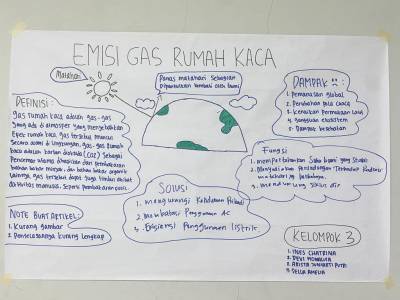 EMISI GAS RUMAH KACA
Matahari
Panas matahari sebagian
dipantulkan kembali oleh bumi
DEFINISI:
gas rumah kaca adalah gas-gas
yang ada di atmosfer yang menyebabkan
Efek rumah kaca. gas tersebut muncul
secara alami di lingkungan, gas-gas rumah
kaca adalah karbon dioksida (CO2) sebagai
Pencemar utama dihasilkan dari pembakaran
bahan bakar minyak, dan bahan bakar organik
lainnya. gas tersebut dapat juga timbul akibat
aktivitas manusia, seperti pembakaran
DAMPAK :
1. Pemanasan global
2. Perubahan pola cuaca
3. Kenaikan Permukaan laut
4. gangguan ekosistem
5. Dampak kesehatan
Fungsi
1. mempertahankan Suhu bumi yang stabil
2. Menyediakan perlindungan Terhadap Radiasi
matahari yg berbahaya.
3. mendukung siklus air
SOLUSI
1. mengurangi Kendaraan Pribadi
2. Membatasi Penggunaan AC
3. Efisiensi Penggunaan listrik
NOTE BUAT ARTIKEL:
1. Kurang gambar
2. Penjelasannya kurang lengkap
KELOMPOK 3
1. INES CHATRINA
2. DEVI
3. ARISTA PUTRI
4. DELLA AMELIA